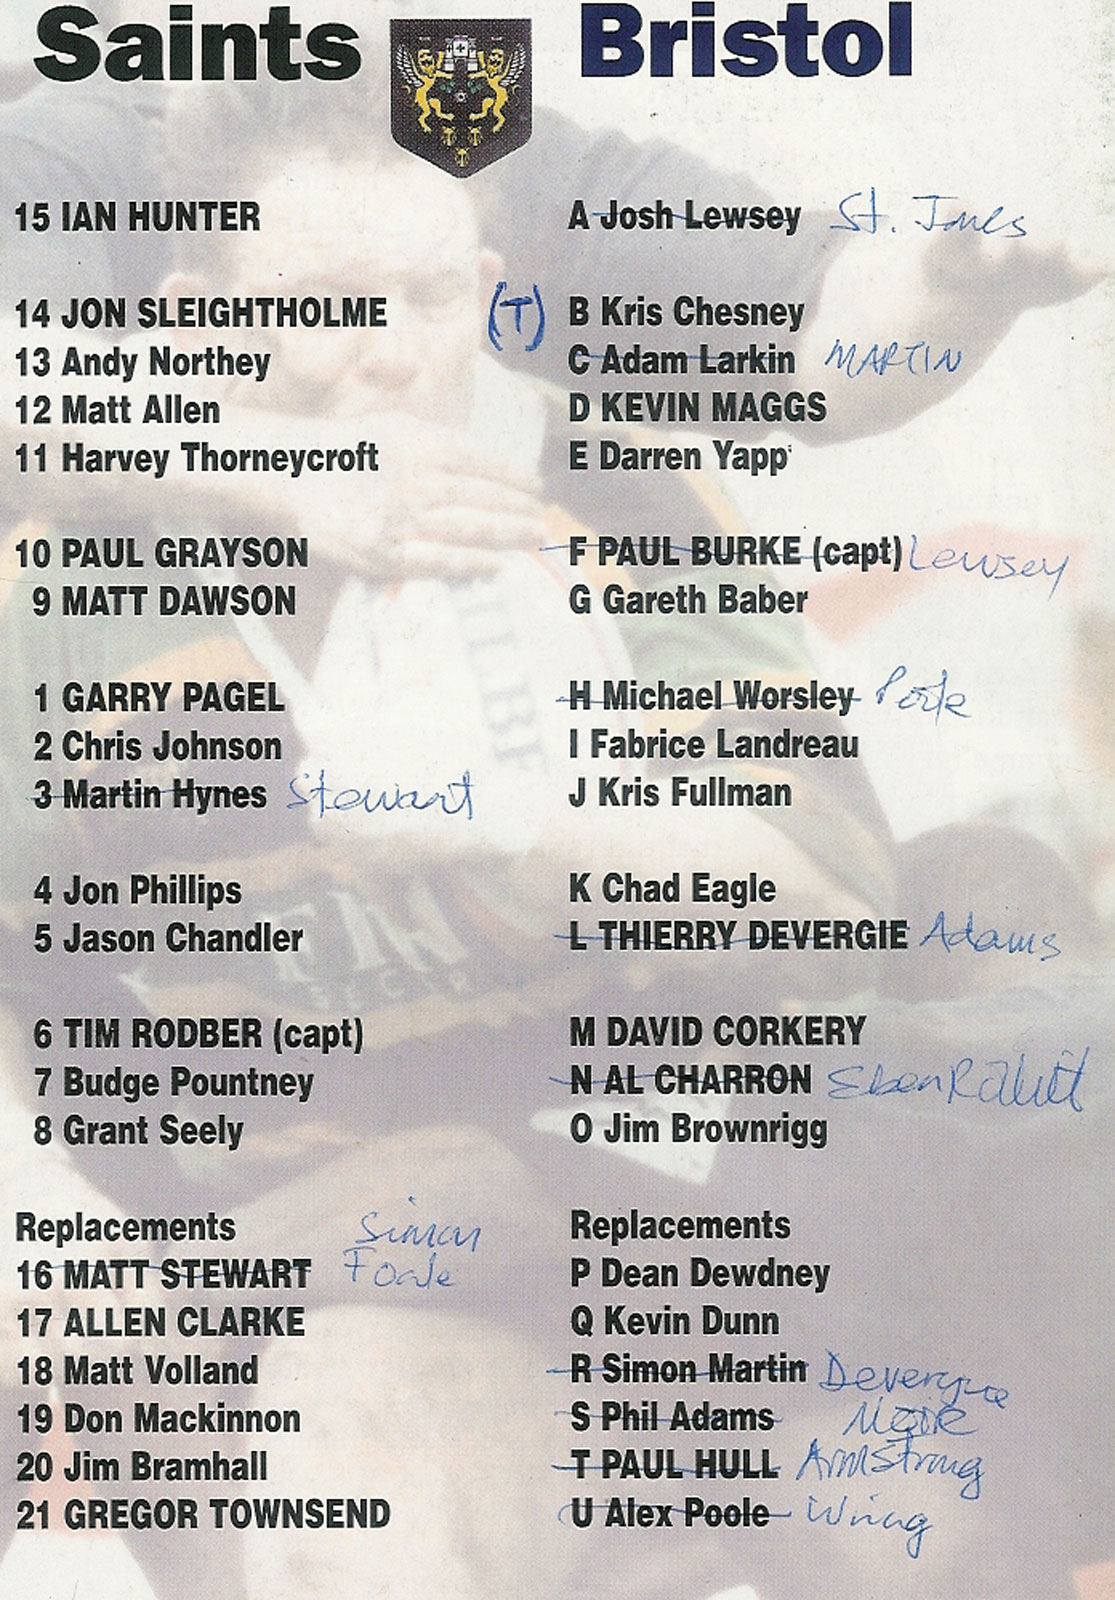 Saints
15 IAN HUNTER
14 JON SLEIGHTHOLME (T)
13 Andy Northey
12 Matt Allen
11 Harvey Thorneycroft
10 PAUL GRAYSON
9 MATT DAWSON
1 GARRY PAGEL
2 Chris Johnson
3 Martin Hynes Stewart
4 Jon Phillips
5 Jason Chandler
6 TIM RODBER (capt)
7 Budge Pountney
8 Grant Seely
Replacements
16 MATT STEWART Simon Foale
17 ALLEN CLARKE
18 Matt Volland
19 Don Mackinnon
20 Jim Bramhall
21 GREGOR TOWNSEND
Bristol
A Josh Lewsey St. Jones
B Kris Chesney
C Adam Larkin MARTIN
D KEVIN MAGGS
E Darren Yapp
F PAUL BURKE (capt) Lewsey
G Gareth Baber
H Michael Worsley
I Fabrice Landreau
J Kris Fullman
K Chad Eagle
L THIERRY DEVERGIE Adams
M DAVID CORKERY
N AL CHARRON Eben
O Jim Brownrigg
Replacements
P Dean Dewdney
Q Kevin Dunn
R Simon Martin
S Phil Adams
T PAUL HULL Armstrong
U Alex Poole Wring